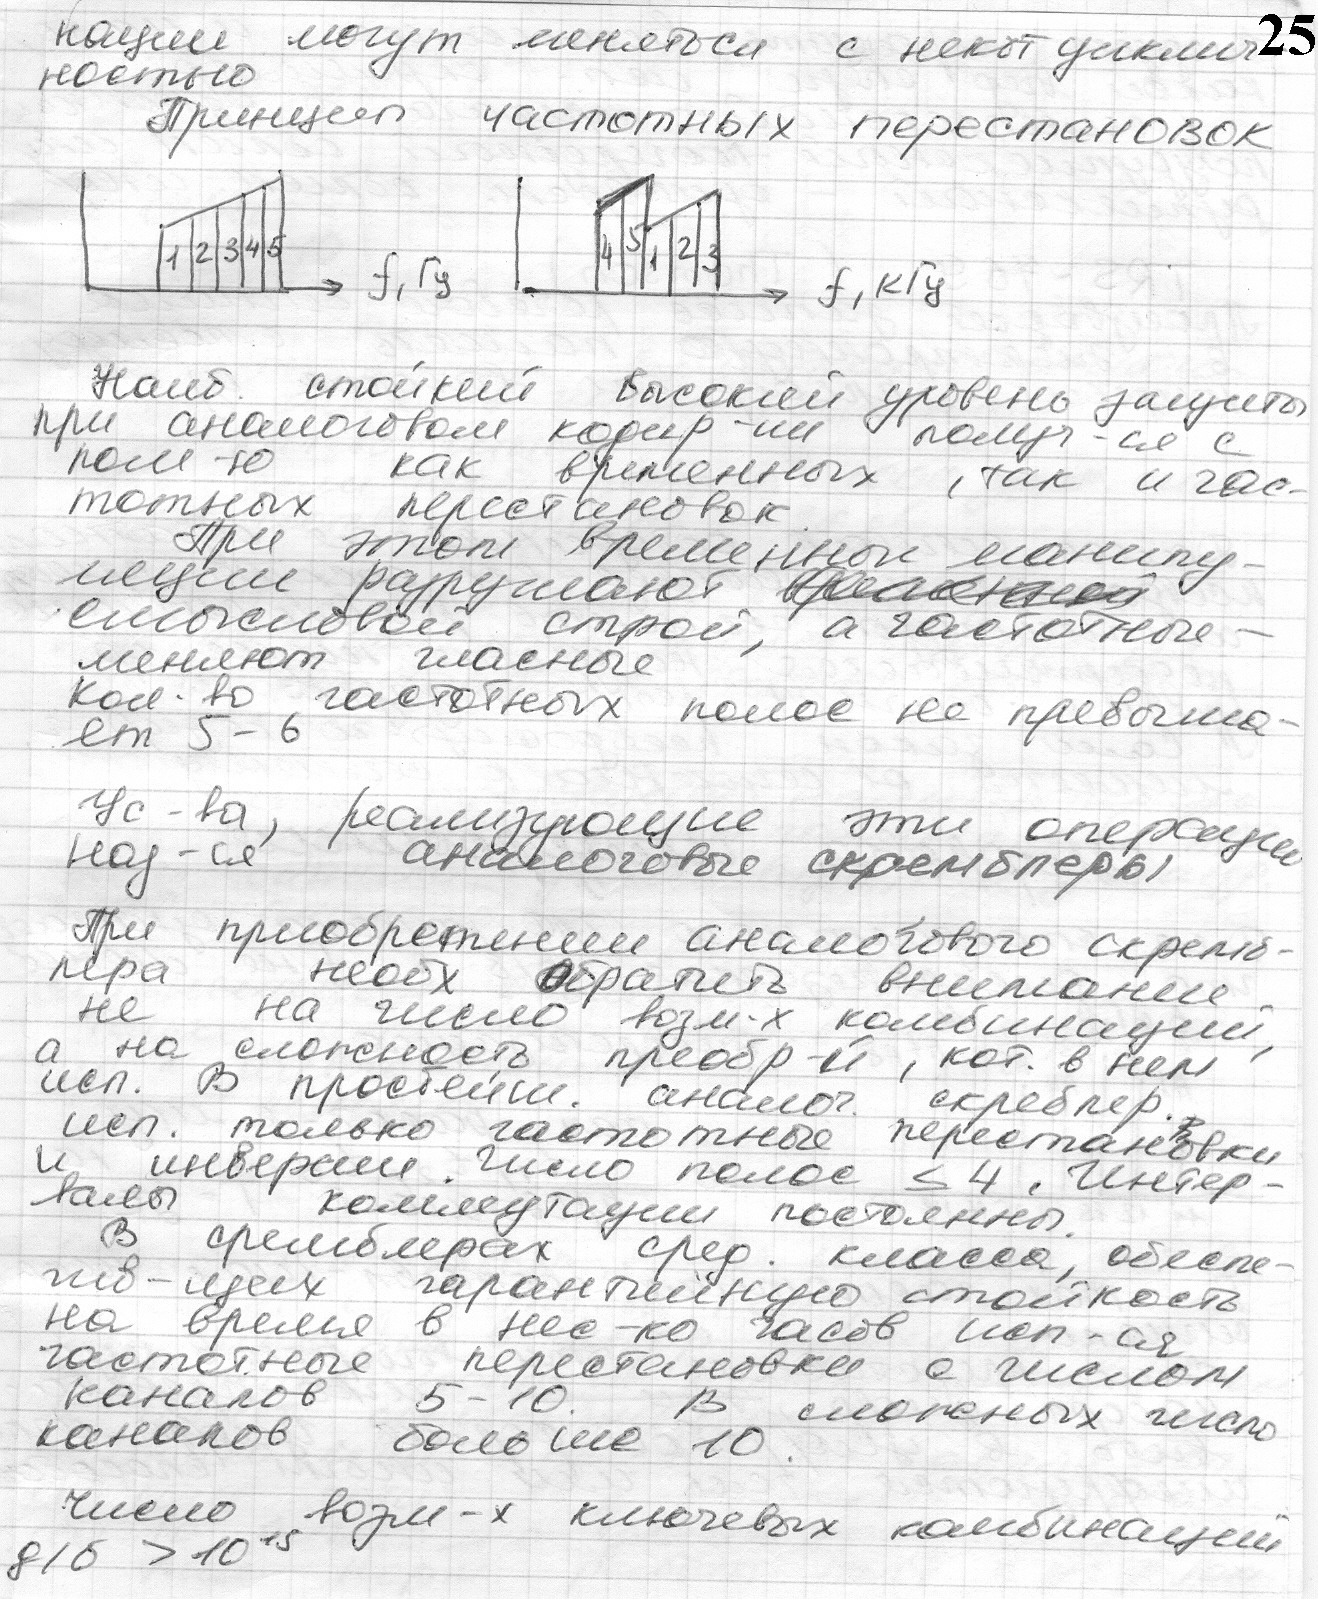 25
нации могут меняться с некот циклич
ностью
Принцип частотных перестановок
1 2 3 4 5 f, Гц
4 5 1 2 3 f, кГц
Наиб. стойкий высокий уровень защиты
при аналоговом кодир-ии получ-ся с
пом-ю как временных, так и час-
тотных перестановок.
При этом временные манипу-
ляции разрушают
смысловой строй, а частотные –
меняют гласные
Кол-во частотных полос не превыша-
ет 5-6
Ус-ва, реализующие эти операции
наз-ся аналоговые скремблеры
При приобретении аналогового скремб-
лера необх обратить внимание
не на число возм-х комбинаций,
а на сложность преобр-й, кот. в нем
исп. В простейш. аналог. скреблер.
исп. только частотные перестановки
и инверсии. Число полос ≤ 4. Интер-
валы коммутации постоянны.
В сремблерах сред. класса, обеспе-
чив-щих гарантийную стойкость
на время в нес-ко часов исп-ся
частотные перестановки с числом
каналов 5-10. В сложных число
каналов больше 10.
Число возм-х ключевых комбинаций
д/б > 10¹⁵